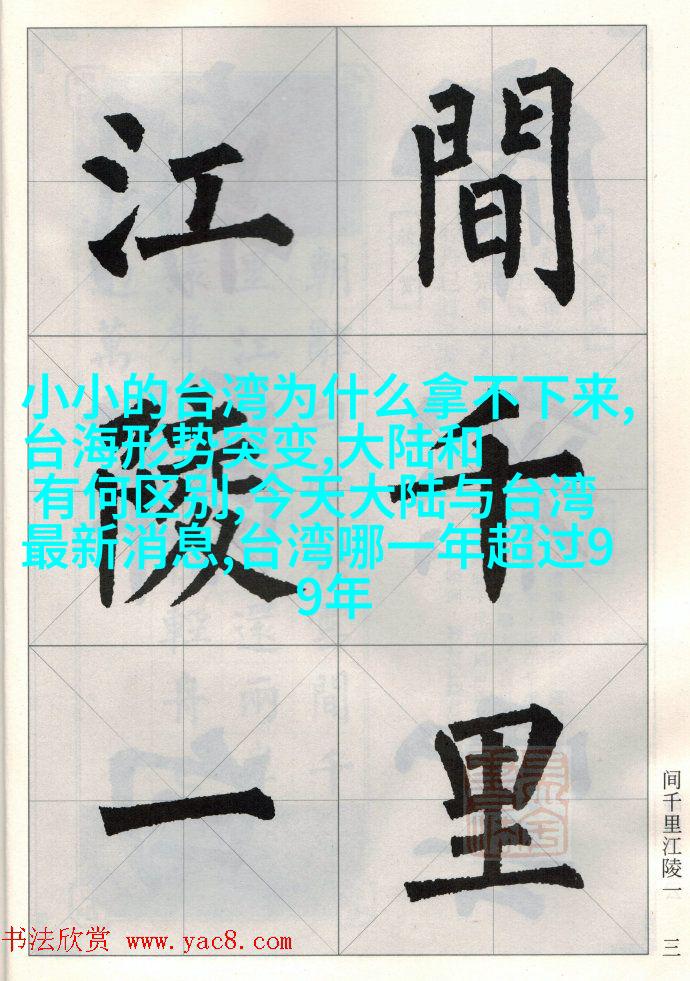 間千里
江陵一
小小的台湾为什么拿不下来,
台海形势突变,大陆和
有何区别,今天大陆与台湾
最新消息,台湾哪一年超过9
9年
间千里江陵一
三
书法欣赏 www.yac8.com